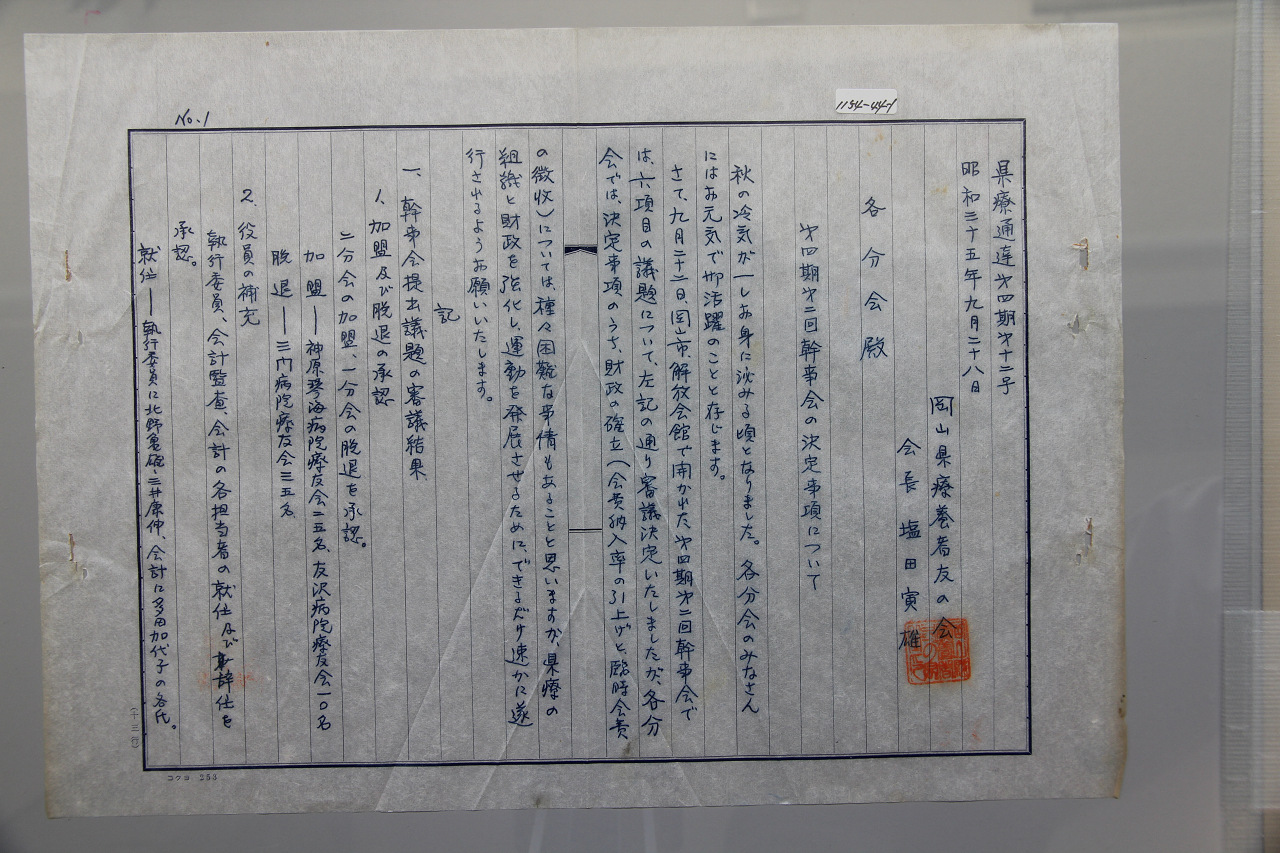 1154-44-1
No.1
県療通達才四期才十二号
昭和三十五年九月二十八日
岡山県療養者友の会
会長 塩田寅雄
各分会殿
才四期才二回幹事会の決定事項について
秋の冷気が一しお身に泌みる頃となりました。各分会のみなさん
にはお元気で御活躍のことと存じます。
さて、九月二十二日、岡山市、解放会館で開かれた、才四期才二回幹事会で
は、六項目の議題について、左記の通り審議決定いたしましたが、各分
会では、決定事項のうち、財政の確立(会費納入率の引上げと、臨時会費
の徴收)については、種々困難な事情もあることと思いますが、県療の
組織と財政を強化し、運動を発展させるために、できるだけ速かに遂
行されるようお願いいたします。
記
一、幹事会提出議題の審議結果
1、加盟及び脱退の承認
二分会の加盟、一分会の脱退を承認。
加盟——神原琴海病院療友会二五名、友沢病院療友会一〇名
脱退——三門病院療友会三五名
2、役員の補充
執行委員、会計監査、会計の各担当者の就任及び辞任を
承認。
就任——執行委員に北野、三井康仲、会計に多田加代子の各氏。
(十三行)
コクヨ 253